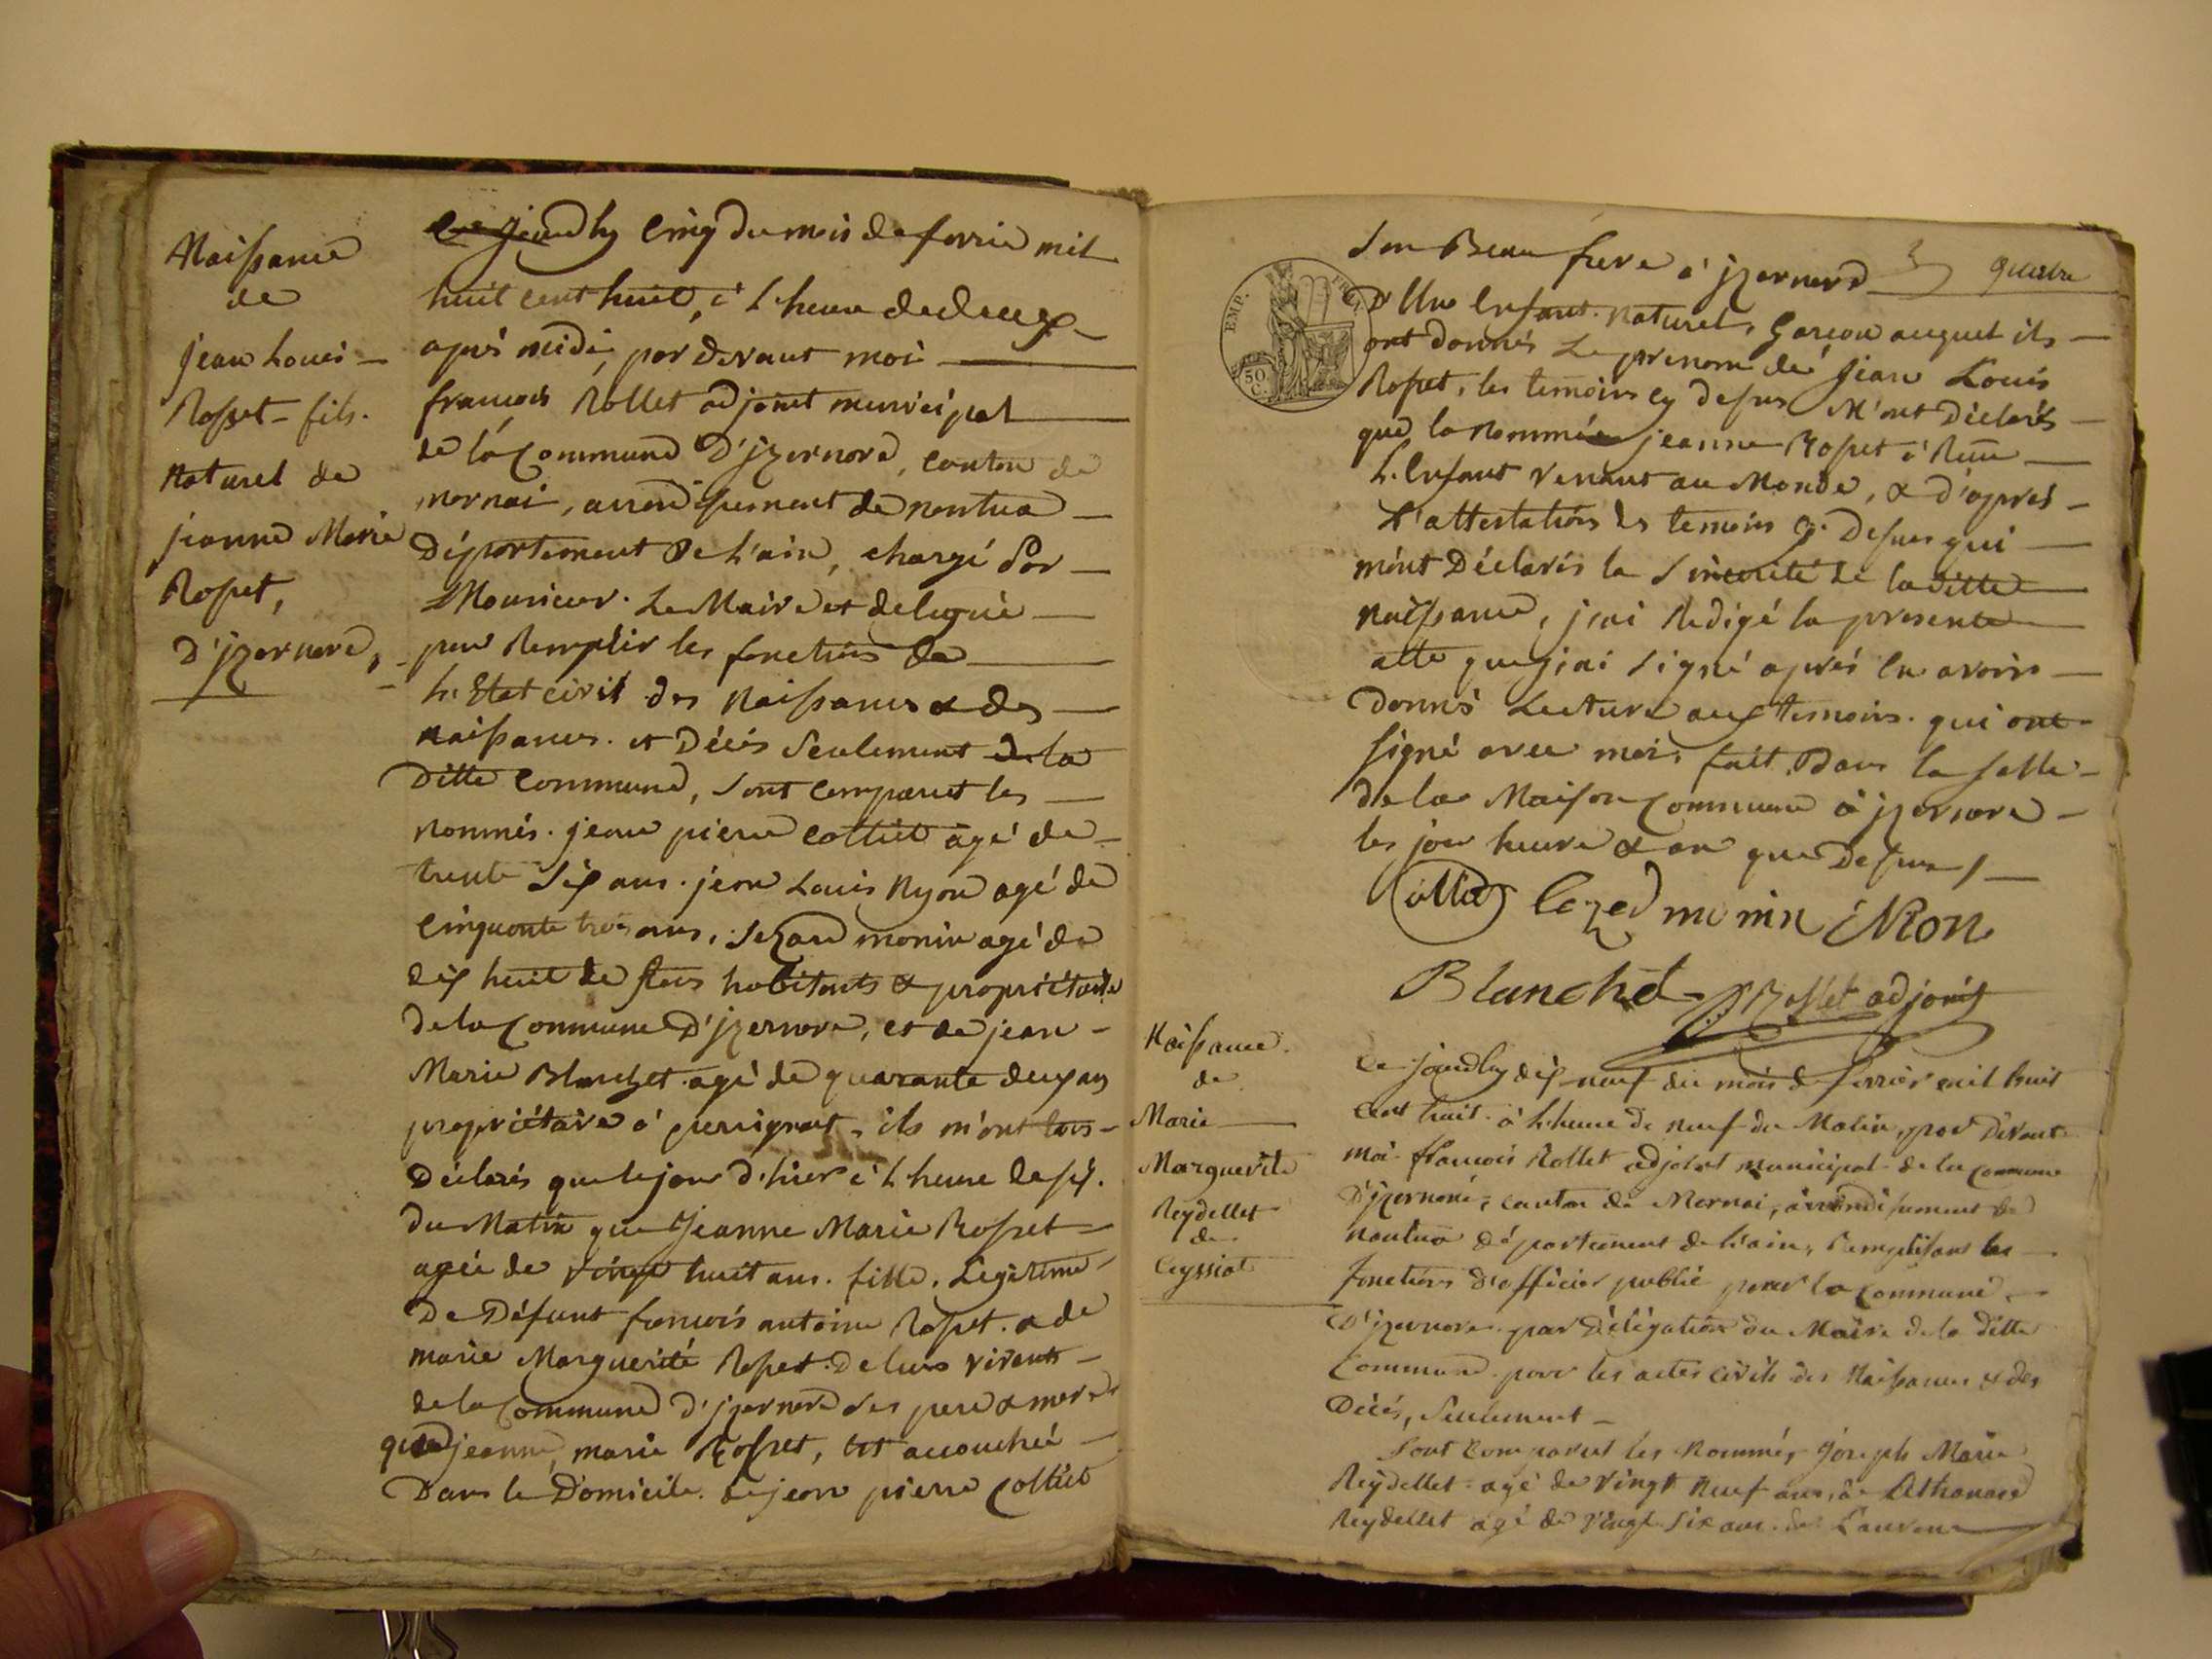 Naissance
de
jean Louis
Rosset fils
naturel de
jeanne Marie
Rosset,
D'jzernore,
Ce jeudhy cinq du mois de ferrier mil
huit cent huit, à l'heure de deux
après midi, par devant moi
françois Rollet adjoint municipal
de la Commune D'jzernore, canton de
mornai, arrondissement de nantua
Département de L'ain, chargé Par
Monsieur Le Maire et delegué
pour Remplir les fonctions de
L'Etat civil des Naissances & des
naissances et Décès Seulement de la
Ditte Commune, Sont comparut les
nommés jean pierre Colliet agé de
trente Six ans jean Louis Nyon agé de
Cinquante trois ans, monin agé de
dix huit habitants & propriétaire
de la Commune D'jzernore, et de jean
Marie Blanchet agé de quarante deux ans
propriétaire à perrignat, ils m'ont tous
Déclarés que le jour d'hier à L'heure de six
du Matin que Jeanne Marie Rosset
agée de vingt huit ans fille Legitime
De Défunt françois antoine Rosset & de
marie Marguerite Rosset De leurs vivants
de la Commune d'jzernore ses pere & mere
que jeanne marie Rosset, est accouchée
Dans le Domicile de jean pierre Colliet
quatre
EMP. FRAN.
50
C.
Son Beau frere à jzernore
D'Un Enfant naturel, Garcon auquel ils
ont donnés Le prenom de Jean Louis
Rosset, les temoins cy dessus M'ont Déclarés
que la nommée jeanne Rosset à
L'Enfant venant au Monde, & d'après
L'attestation des temoins cy Dessus qui
m'ont Déclarés la Sincerité de la ditte
naissance, j'ai Redigé la presente
atte que j'ai Signé après en avoir
Donnés Lecture aux temoins qui ont
signé avec moi, fait Dans la Salle
de la Maison Commune à jzernore
les jour heure & an que Dessus
Colliet monin Nion
Blanchet Rollet adjoint
Naissance
de
Marie
Marguerite
Reydellet
de
Ceyssiat
Ce jeudhy dix neuf du mois de ferrier mil huit
cent huit à L'heure de neuf du Matin, par Devant
moi françois Rollet adjoint municipal de la Commune
D'jzernore, canton de Mornai, arrondissement de
nantua département de l'ain, Remplissant les
fonctions d'officier public pour la Commune
D'jzernore par Délégation du Maire de la ditte
Commune pour les actes civils des Naissances & des
Décès, Seulement
Sont Comparut les Nommés Joseph Marie
Reydellet agé de Vingt Neuf ans, & Athanase
Reydellet agé de Vingt Six ans de